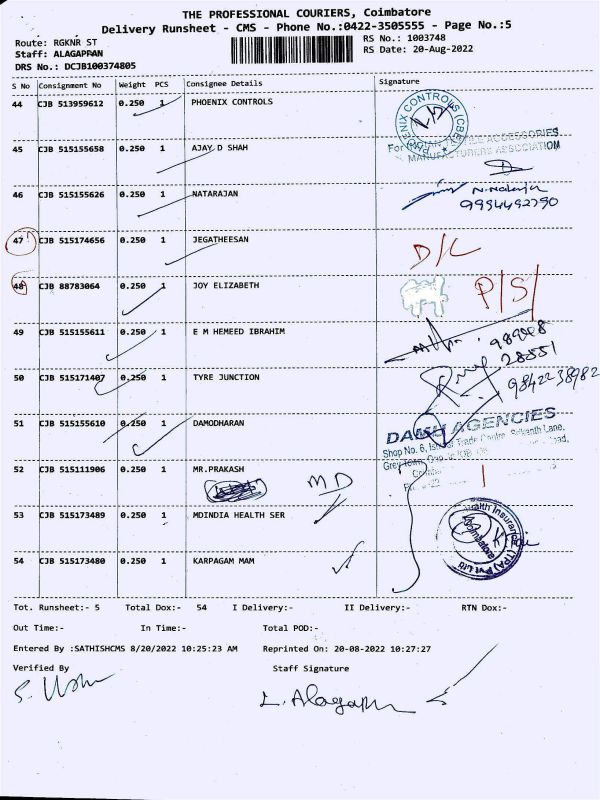 THE PROFESSIONAL COURIERS, Coimbatore
Delivery Runsheet - CMS - Phone No.:0422-3505555 - Page No.:5
Route: RGKNR ST
RS No.: 1003748
Staff: ALAGAPPAN
RS Date: 20-Aug-2022
DRS No.: DCJB100374805
S No Consignment No Weight PCS Consignee Details Signature
44 CJB 513959612 0.250 1 PHOENIX CONTROLS
PHOENIX CONTROLS (CBE)
45 CJB 515155658 0.250 1 AJAY D SHAH
For ACCESSORIES
MANUFACTURERS ASSOCIATION
46 CJB 515155626 0.250 1 NATARAJAN
9994492790
47 CJB 515174656 0.250 1 JEGATHEESAN
D/L
48 CJB 88783064 0.250 1 JOY ELIZABETH
P/S/
49 CJB 515155611 0.250 1 E M HEMEED IBRAHIM
28551
50 CJB 515171407 0.250 1 TYRE JUNCTION
9842238982
51 CJB 515155610 0.250 1 DAMODHARAN
AGENCIES
Shop No. 6, Trade Centre, Lane,
52 CJB 515111906 0.250 1 MR.PRAKASH
MD
53 CJB 515173489 0.250 1 MDINDIA HEALTH SER
Health Insurance (TPA) Pvt Ltd
Coimbatore
54 CJB 515173480 0.250 1 KARPAGAM MAM
Tot. Runsheet:- 5 Total Dox:- 54 I Delivery:- II Delivery:- RTN Dox:-
Out Time:- In Time:- Total POD:-
Entered By :SATHISHCMS 8/20/2022 10:25:23 AM Reprinted On: 20-08-2022 10:27:27
Verified By Staff Signature